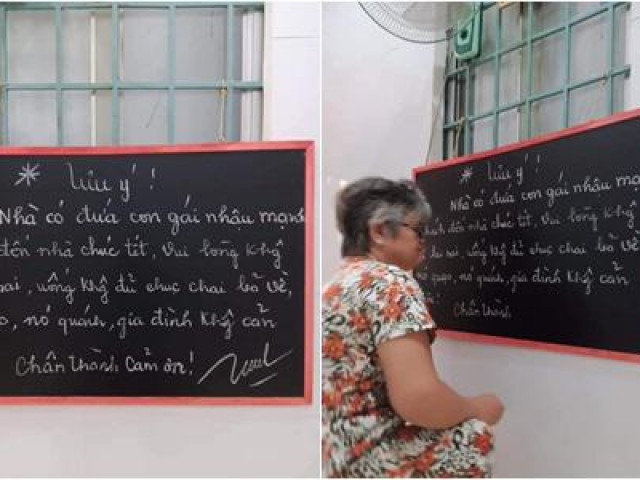 * Lưu ý !
Nhà có đứa con gái nhậu mạnh
đến nhà chúc tết, vui lòng khg
uống khg đủ chục chai bỏ về,
nó quánh, gia đình khg cản
Chân thành Cảm ơn !
* Lưu ý !
Nhà có đứa con gái nhậu mạnh
khách đến nhà chúc tết, vui lòng khg
rai, uống khg đủ chục chai bỏ về,
quạo, nó quánh, gia đình khg cản
Chân thành